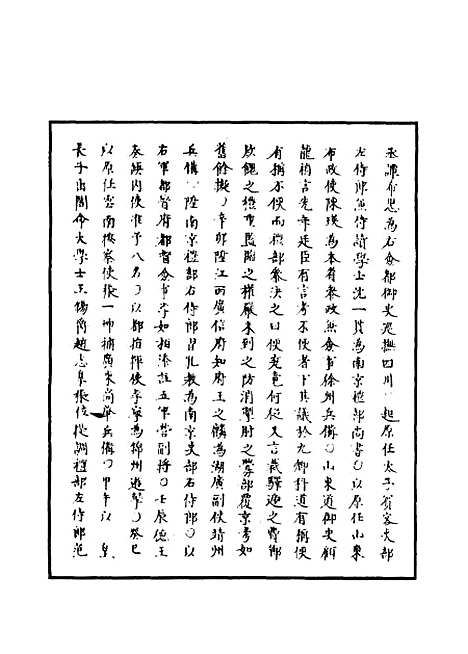 丞譚希思為右僉都御史巡撫四川○起原任太子賓客吏部
左侍郎兼侍讀學士沈一貫為南京禮部尚書○以原任山東
布政使陳瑛為本省參政兼僉事徐州兵備○山東道御史顧
龍禎言先年廷臣有言考不便者下其議於九卿科道有稱便
有稱不便而禮部參決之曰便竟何從又言裁驛遞之費節
飲餽之禮重監臨之權嚴未到之防消掣肘之弊部覆京考如
舊餘擬○辛卯陞江西廣信府知府王之麟為湖廣副使靖州
兵備○陞南京禮部右侍郎習孔教為南京吏部右侍郎○以
右軍都督府都督僉事李如柏添註五軍營副將○壬辰德王
奏缺內使准予八名○以都指揮使李寧為錦州遊擊○癸巳
以原任雲南按察使張一坤補廣東尚肇兵備○甲午以 皇
長子出閣命大學士王錫爵趙志皋張位從調禮部左侍郎范